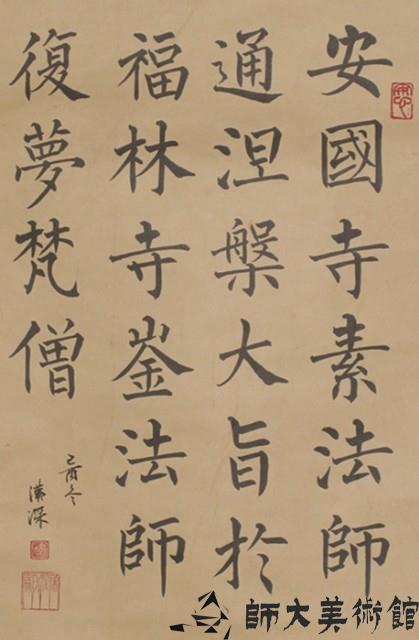 安國寺素法師
通涅槃大旨於
福林寺崟法師
復夢梵僧
己酉冬
師大美術館